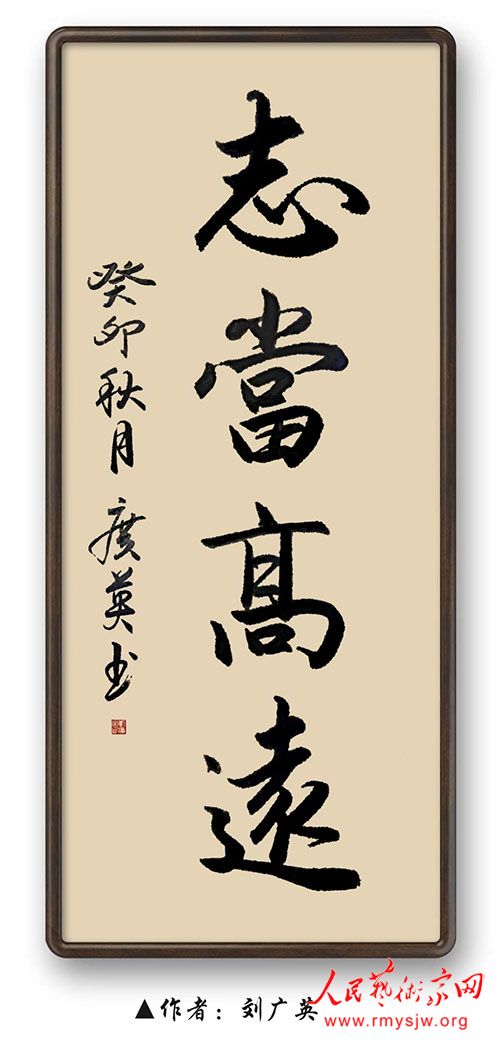 志當高遠
癸卯秋月 廣英书
▲作者：刘广英
人民藝術家网
www.rmysjw.org